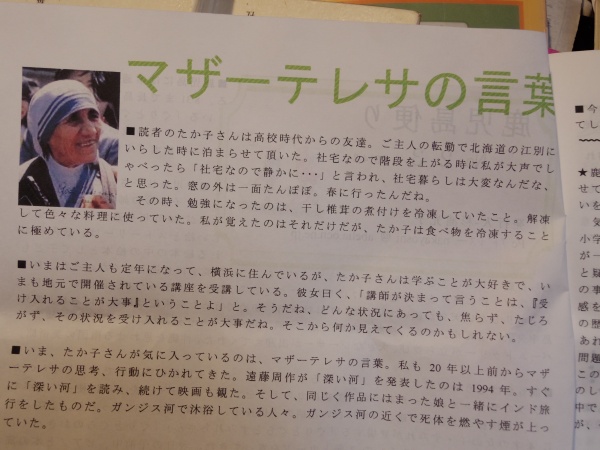 マザーテレサの言葉
■読者のたか子さんは高校時代からの友達。ご主人の転勤で北海道の江別に
いらした時に泊まらせて頂いた。社宅なので階段を上がる時に私が大声でし
ゃべったら「社宅なので静かに・・・」と言われ、社宅暮らしは大変なんだな、
と思った。窓の外は一面たんぽぽ。春に行ったんだね。
その時、勉強になったのは、干し椎茸の煮付けを冷凍していたこと。解凍
して色々な料理に使っていた。私が覚えたのはそれだけだが、たか子は食べ物を冷凍すること
に極めている。
■いまはご主人も定年になって、横浜に住んでいるが、たか子さんは学ぶことが大好きで、い
まも地元で開催されている講座を受講している。彼女曰く、「講師が決まって言うことは、『受
け入れることが大事』ということよ」と。そうだね、どんな状況にあっても、焦らず、たじろ
がず、その状況を受け入れることが大事だね。そこから何か見えてくるのかもしれない。
■いま、たか子さんが気に入っているのは、マザーテレサの言葉。私も 20 年以上前からマザ
ーテレサの思考、行動にひかれてきた。遠藤周作が「深い河」を発表したのは 1994 年。すぐ
に「深い河」を読み、続けて映画も観た。そして、同じく作品にはまった娘と一緒にインド旅
行をしたものだ。ガンジス河で沐浴している人々。ガンジス河の近くで死体を燃やす煙が上っ
ていた。
鹿児島便り
■今
てし
★鹿
せて
いを
気
小学
が一
と疑
の事
感を
の歴
あれ
問題
この
のし
中で
が、